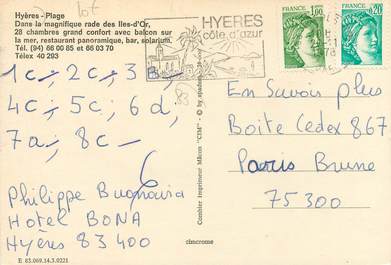 Hyères - Plage
Dans la magnifique rade des Iles-d'Or,
28 chambres grand confort avec balcon sur
la mer, restaurant panoramique, bar, solarium.
Tél. (94) 66 00 85 et 66 03 70
Télex 40 293
HYERES
côte d'azur
FRANCE
1,00
FRANCE
0,20
1c, 2c, 3
4c, 5c, 6d,
7a, 8c
6
Philippe
Hotel BONA
Hyères 83 400
En Savoir plus
Boite Cedex 867
Paris Brune
75300
Combier Imprimeur Mâcon "CIM"
cimcrome
E 83.069.14.3.0221